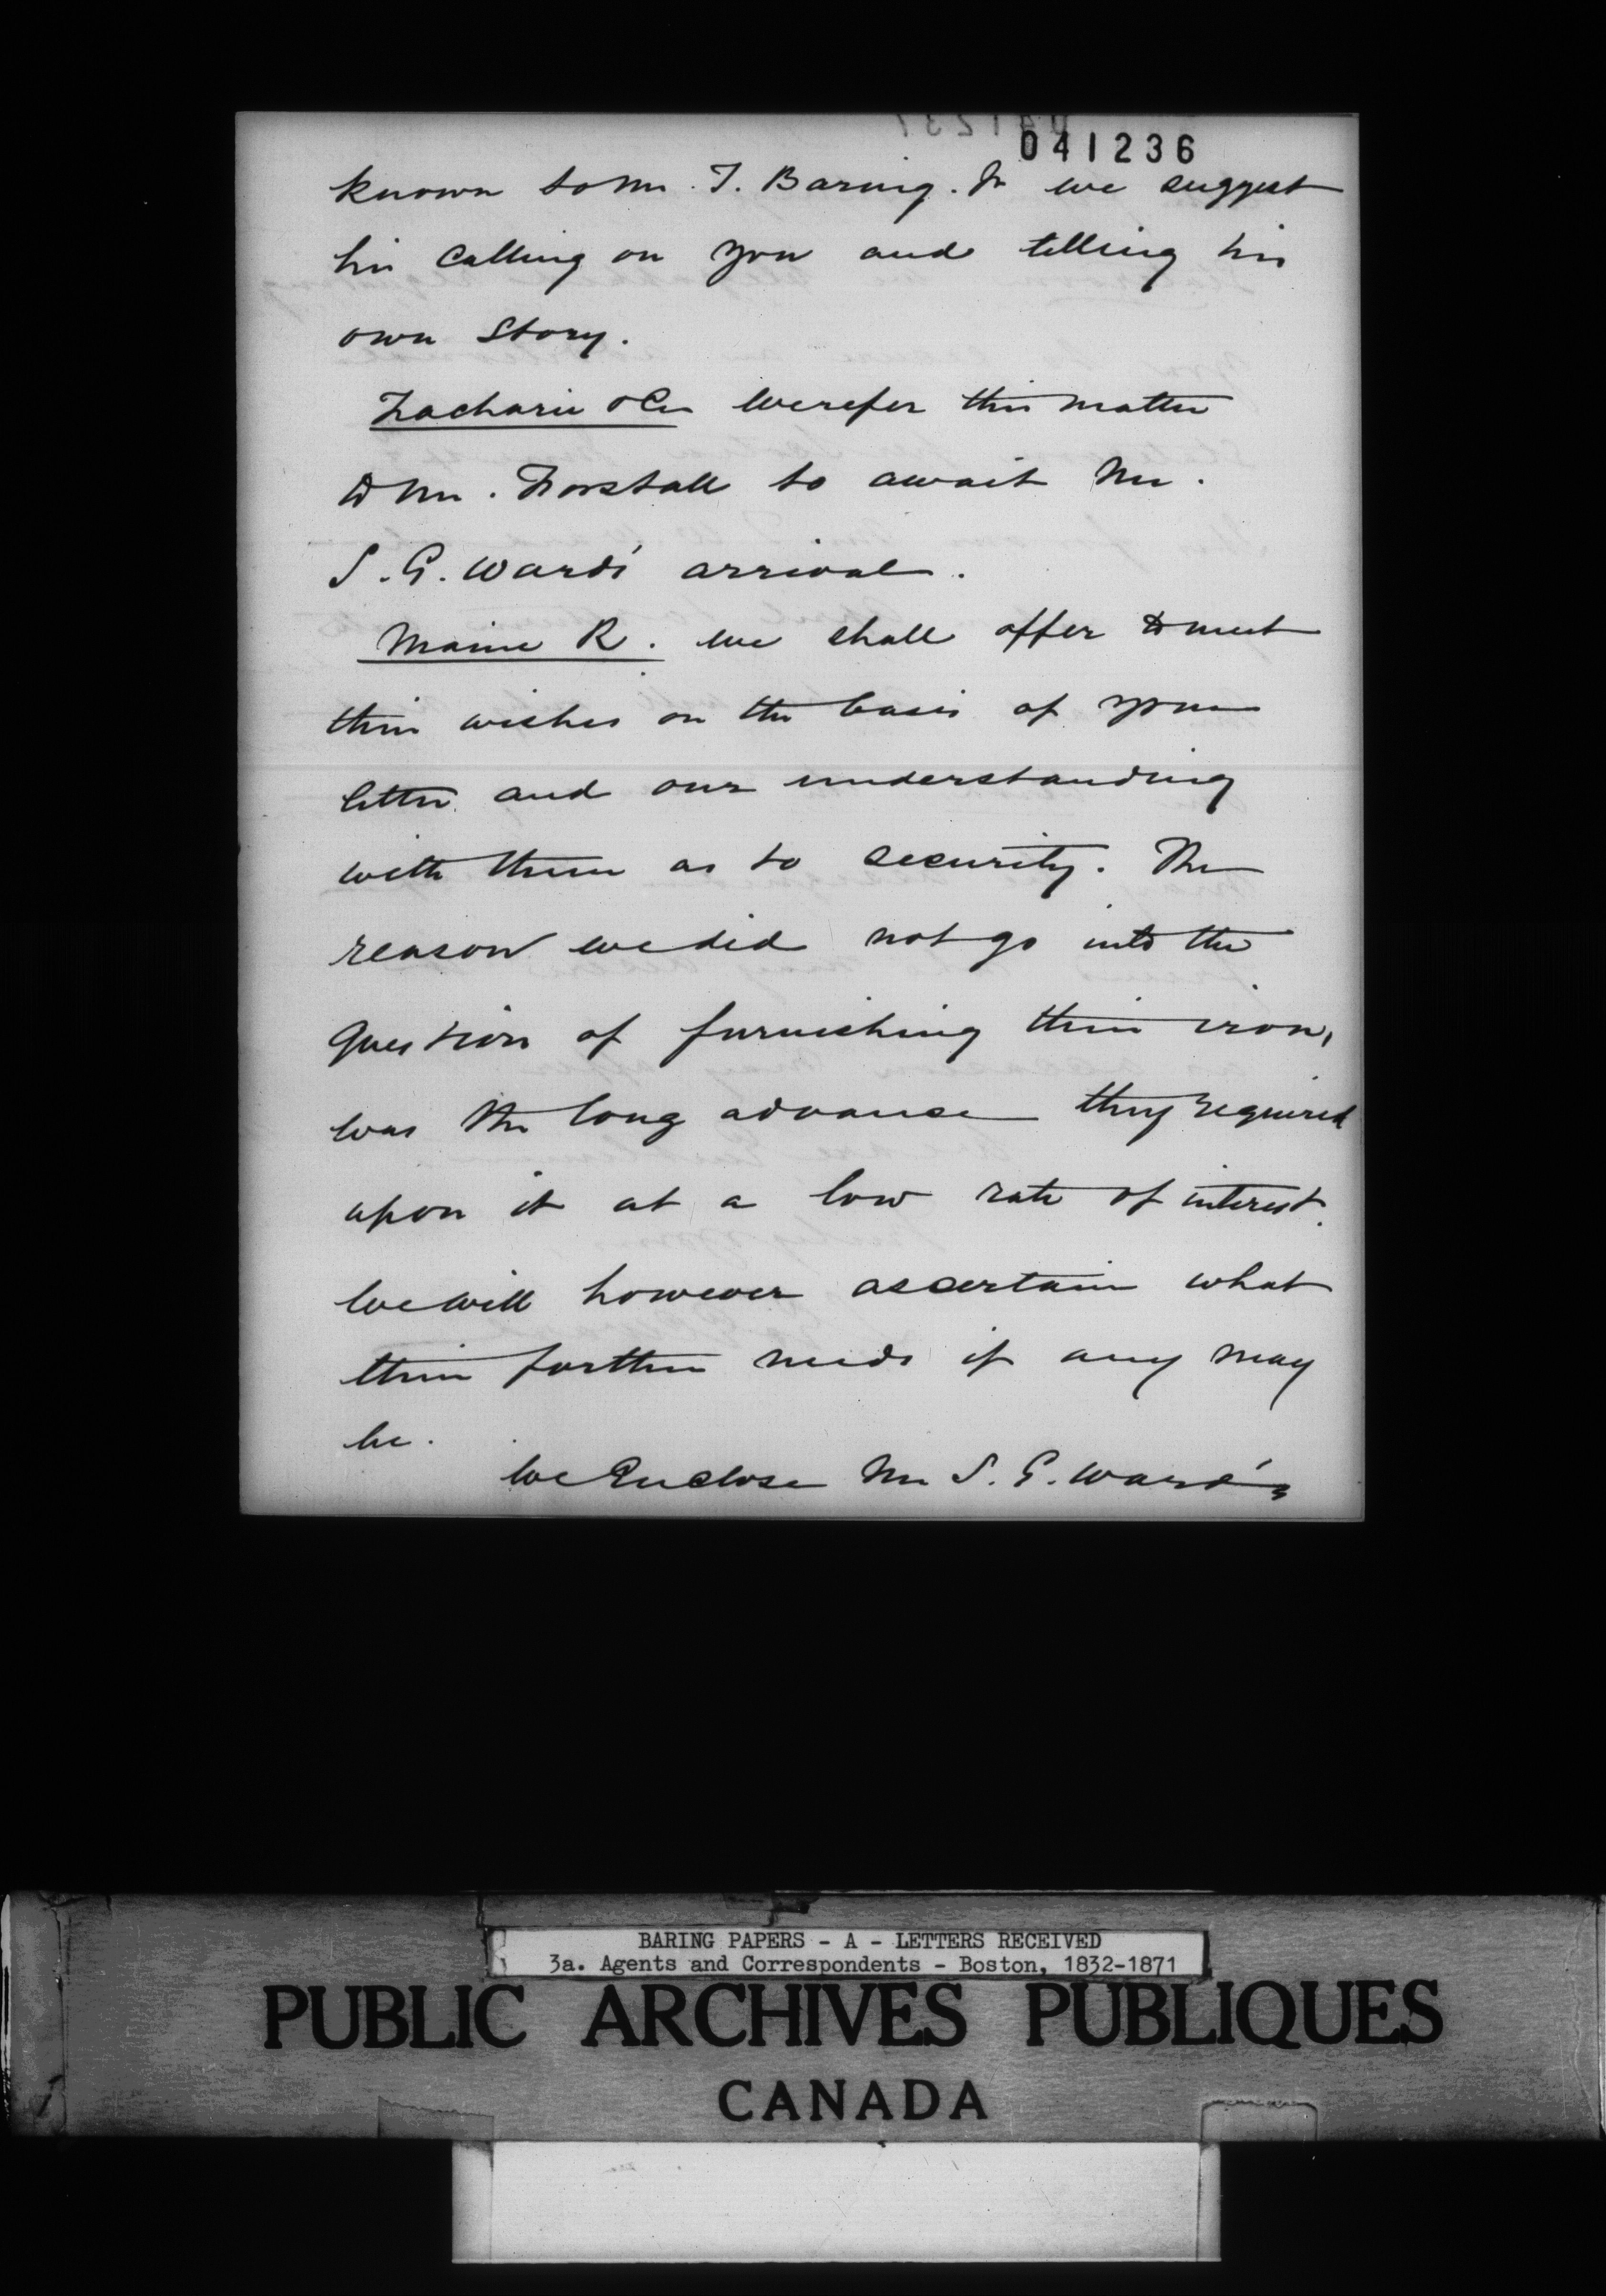 041236
known to Mr. T. Baring. Jr we suggest
his calling on you and telling his
own story.
Zacharie & Co we refer this matter
to Mr. Forstall to await Mr.
S. G. Ward's arrival.
Maine R. we shall offer to meet
their wishes on the basis of your
letter and our understanding
with them as to security. The
reason we did not go into the
question of furnishing their iron,
was the long advance they required
upon it at a low rate of interest.
We will however ascertain what
their further needs if any may
be.
We Enclose Mr S. G. Ward's
BARING PAPERS - A - LETTERS RECEIVED
3a. Agents and Correspondents - Boston, 1832-1871
PUBLIC ARCHIVES PUBLIQUES
CANADA